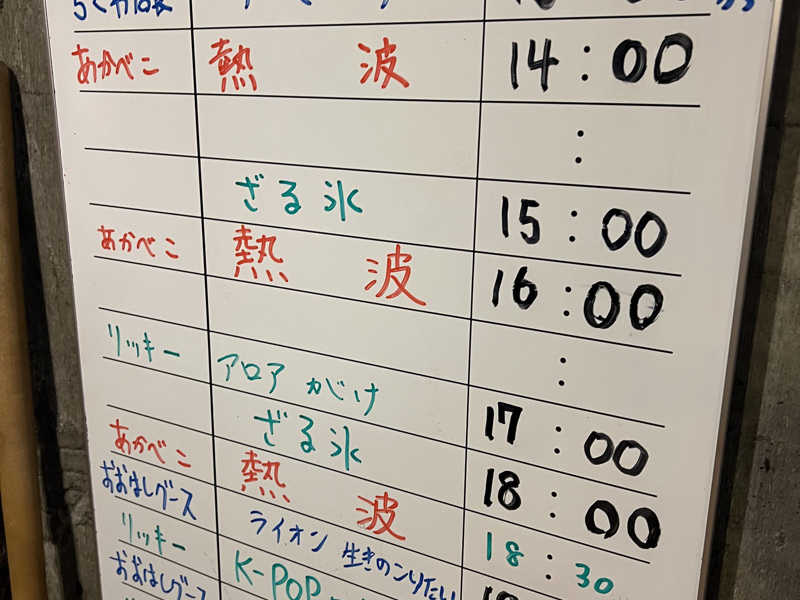 あかべこ 熱波 14:00
:
ざる氷 15:00
あかべこ 熱波 16:00
:
リッキー アロア がけ 17:00
ざる氷 18:00
あかべこ 熱波 18:30
おおはしグース ライオン 生きのこりたい
リッキー K-POP
おおはしグース